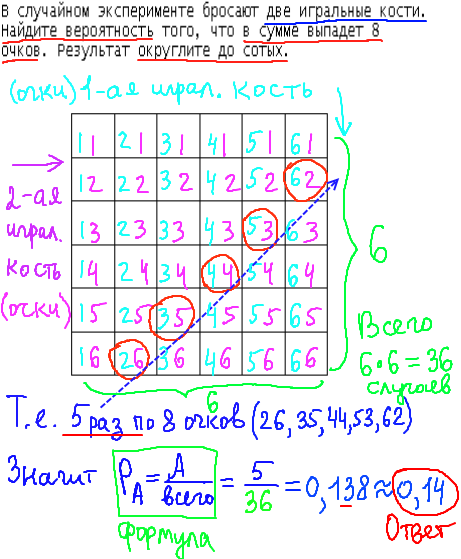 В случайном эксперименте бросают две игральные кости.
Найдите вероятность того, что в сумме выпадет 8
очков. Результат округлите до сотых.
(очки) 1-ая играл. кость
11 21 31 41 51 61
12 22 32 42 52 62
13 23 33 43 53 63
14 24 34 44 54 64
15 25 35 45 55 65
16 26 36 46 56 66
2-ая
играл.
кость
(очки)
6
Всего
6·6=36
случаев
6
Т.е. 5 раз по 8 очков (26, 35, 44, 53, 62)
Значит P_A = A/всего = 5/36 = 0,138 ≈ 0,14
формула
Ответ